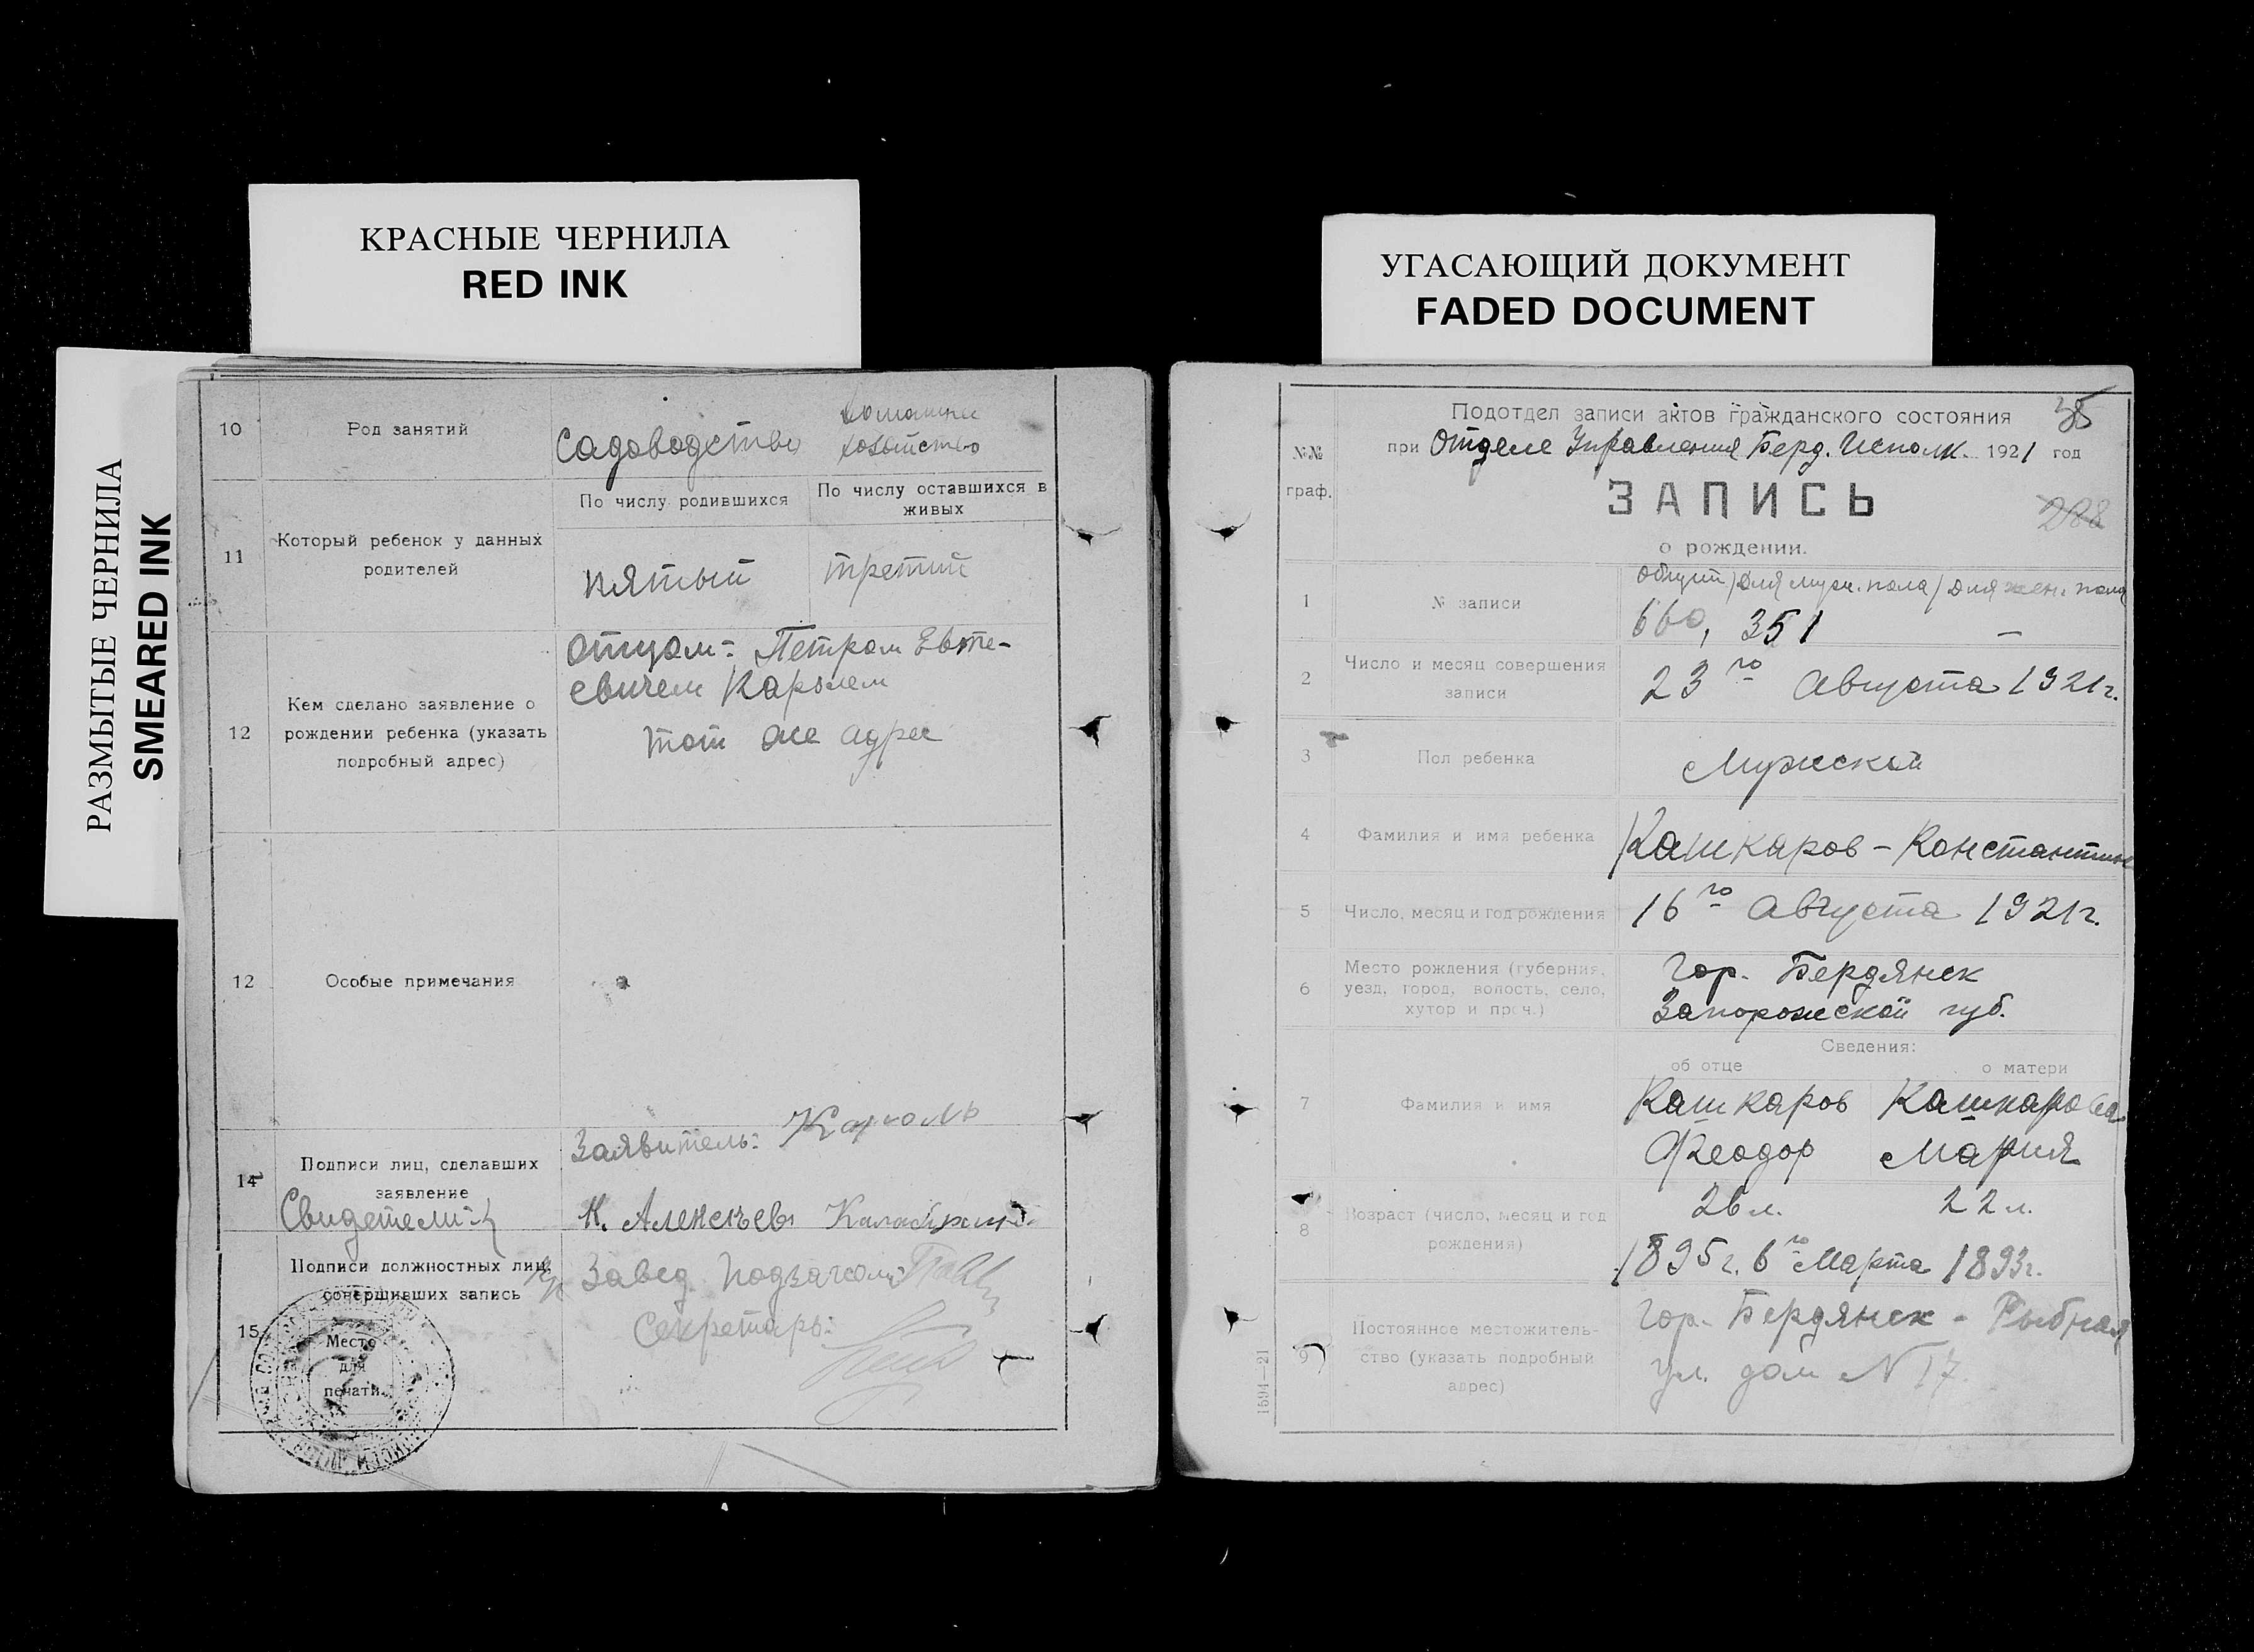 КРАСНЫЕ ЧЕРНИЛА
RED INK
РАЗМЫТЫЕ ЧЕРНИЛА
SMEARED INK
10 Род занятий
садоводство
домашнее
хозяйство
11 Который ребенок у данных
родителей
По числу родившихся
По числу оставшихся в
живых
пятый
третий
12 Кем сделано заявление о
рождении ребенка (указать
подробный адрес)
отцом: Петром Евте-
евичем Каролем
тот же адрес
12 Особые примечания
14 Подписи лиц, сделавших
заявление
Свидетели:
Заявитель: Кароль
Н. Алексеев
15 Подписи должностных лиц,
совершивших запись
Место
для
печати.
Завед.
Секретарь:
УГАСАЮЩИЙ ДОКУМЕНТ
FADED DOCUMENT
35
Подотдел записи актов гражданского состояния
при Отделе Управления Берд. Исполк. 1921 год
№№
граф.
ЗАПИСЬ
288
о рождении.
1 № записи
общий / для муж. пола / для жен. пола
660, 351 —
2 Число и месяц совершения
записи
23го Августа 1921г.
3 Пол ребенка
Мужской
4 Фамилия и имя ребенка
Кашкаров - Константин
5 Число, месяц и год рождения
16го Августа 1921г.
6 Место рождения (губерния,
уезд, город, волость, село,
хутор и проч.)
Гор. Бердянск
Запорожской губ.
Сведения:
об отце
о матери
7 Фамилия и имя
Кашкаров
Феодор
Кашкарова
Мария
8 Возраст (число, месяц и год
рождения)
26 л.
22 л.
1895г. 6го Марта 1893г.
9 Постоянное местожитель-
ство (указать подробный
адрес)
Гор. Бердянск - Рыбная
ул. дом № 17.
1594—21